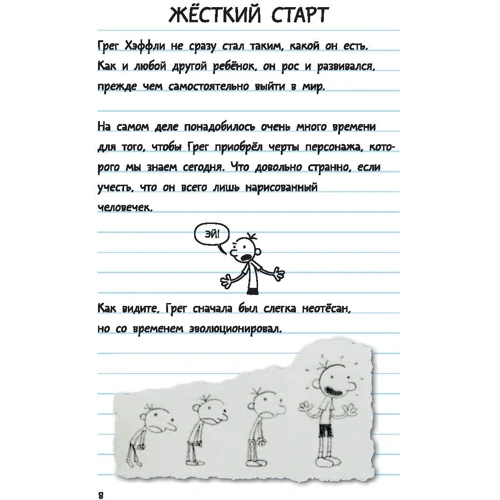 ЖЁСТКИЙ СТАРТ
Грег Хэффли не сразу стал таким, какой он есть.
Как и любой другой ребёнок, он рос и развивался,
прежде чем самостоятельно выйти в мир.
На самом деле понадобилось очень много времени
для того, чтобы Грег приобрёл черты персонажа, кото-
рого мы знаем сегодня. Что довольно странно, если
учесть, что он всего лишь нарисованный
человечек.
ЭЙ!
Как видите, Грег сначала был слегка неотёсан,
но со временем эволюционировал.
8